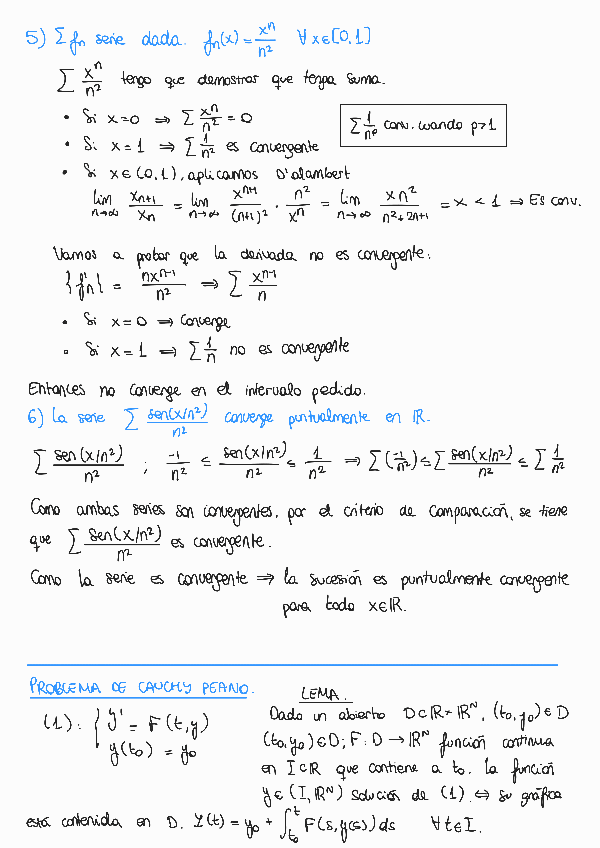 5) Σ fn serie dada. fn(x) = x^n/n² ∀x∈[0,1]
Σ x^n/n² tengo que demostrar que tenga suma.
• Si x=0 ⇒ Σ x^n/n² = 0
Σ 1/n^p conv. cuando p>1
• Si x=1 ⇒ Σ 1/n² es convergente
• Si x∈(0,1), aplicamos D'alambert
lim n→∞ x_{n+1}/x_n = lim n→∞ x^{n+1}/(n+1)² · n²/x^n = lim n→∞ xn²/(n²+2n+1) = x < 1 ⇒ Es conv.
Vamos a probar que la derivada no es convergente:
{f'n} = nx^{n-1}/n² ⇒ Σ x^{n-1}/n
• Si x=0 ⇒ Converge
• Si x=1 ⇒ Σ 1/n no es convergente
Entonces no converge en el intervalo pedido.
6) La serie Σ sen(x/n²)/n² converge puntualmente en ℝ.
Σ sen(x/n²)/n² ; -1/n² ≤ sen(x/n²)/n² ≤ 1/n² ⇒ Σ(-1/n²) ≤ Σ sen(x/n²)/n² ≤ Σ 1/n²
Como ambas series son convergentes, por el criterio de comparación, se tiene
que Σ sen(x/n²)/n² es convergente.
Como la serie es convergente ⇒ la sucesión es puntualmente convergente
para todo x∈ℝ.
PROBLEMA DE CAUCHY PEANO.
(1): { y' = F(t,y)
y(t₀) = y₀
LEMA.
Dado un abierto D⊂ℝ×ℝ^N, (t₀,y₀)∈D
(t₀,y₀)∈D; F: D → ℝ^N función continua
en I⊂ℝ que contiene a t₀. La función
y∈(I,ℝ^N) solución de (1) ⇔ su gráfica
está contenida en D. Y(t) = y₀ + ∫_{t₀}^{t} F(s,y(s))ds ∀t∈I.